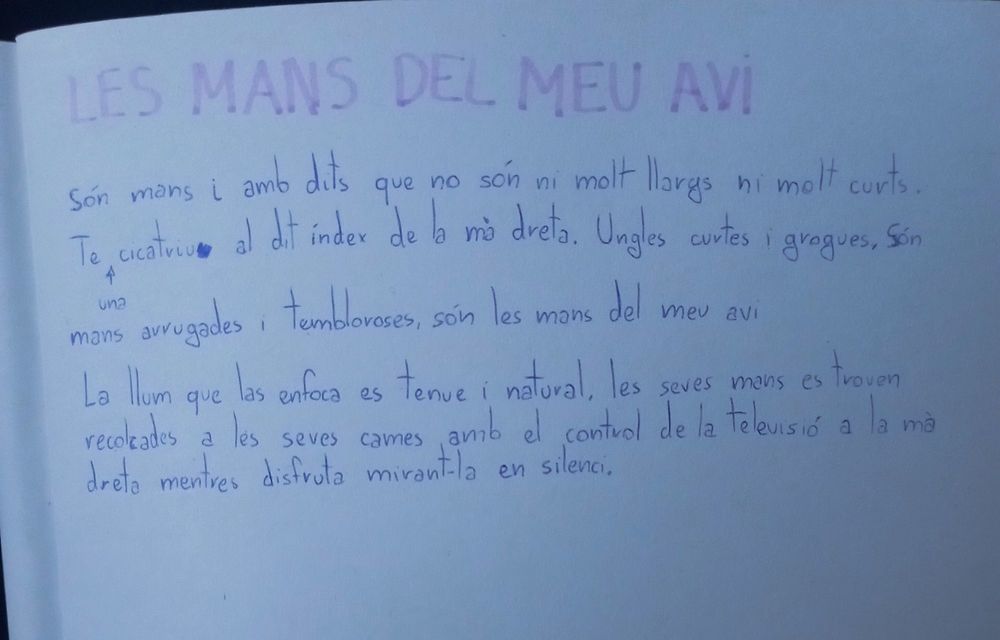 LES MANS DEL MEU AVI
Són mans i amb dits que no són ni molt llargs ni molt curts.
Te una cicatriu al dit índex de la mà dreta. Ungles curtes i grogues, Són
mans arrugades i tembloroses, són les mans del meu avi
La llum que las enfoca es tenue i natural, les seves mans es troven
recolzades a les seves cames, amb el control de la televisió a la mà
dreta mentres disfruta mirant-la en silenci.